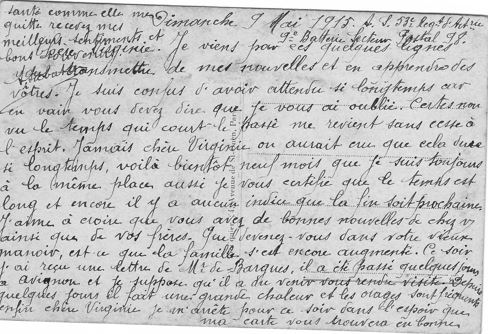 Dimanche 9 Mai 1915. A. S. 53e Regt d'Art
9e Batterie Secteur Postal 98.
Chère Virginie. Je viens par ces quelques lignes
vous transmettre de mes nouvelles et en apprendre des
vôtres. Je suis confus d'avoir attendu si longtemps car
en vain vous devez dire que je vous ai oubliée. Certes non
vu le temps qui court le passé me revient sans cesse à
l'esprit. Jamais chère Virginie on aurait cru que cela dure
si longtemps, voilà bientôt neuf mois que je suis toujours
à la même place aussi je vous certifie que le temps est
long et encore il y a aucun indice que la fin soit prochaine.
J'aime à croire que vous avez de bonnes nouvelles de chez v
ainsi que de vos frères. Que devenez-vous dans votre vieux
manoir, est ce que la famille s'est encore augmenté. Ce soir
j'ai reçu une lettre de Mr de Bargues, il a été passé quelques jours
a avignon et je suppose qu'il a du venir vous rendre visite. Depuis
quelques jours il fait une grande chaleur et les orages sont fréquents
enfin chère Virginie je m'arrête pour ce soir dans l'espoir que
ma carte vous trouvera en bonne
santé comme elle me
quitte recevez mes
meilleurs sentiments et
bons souvenirs